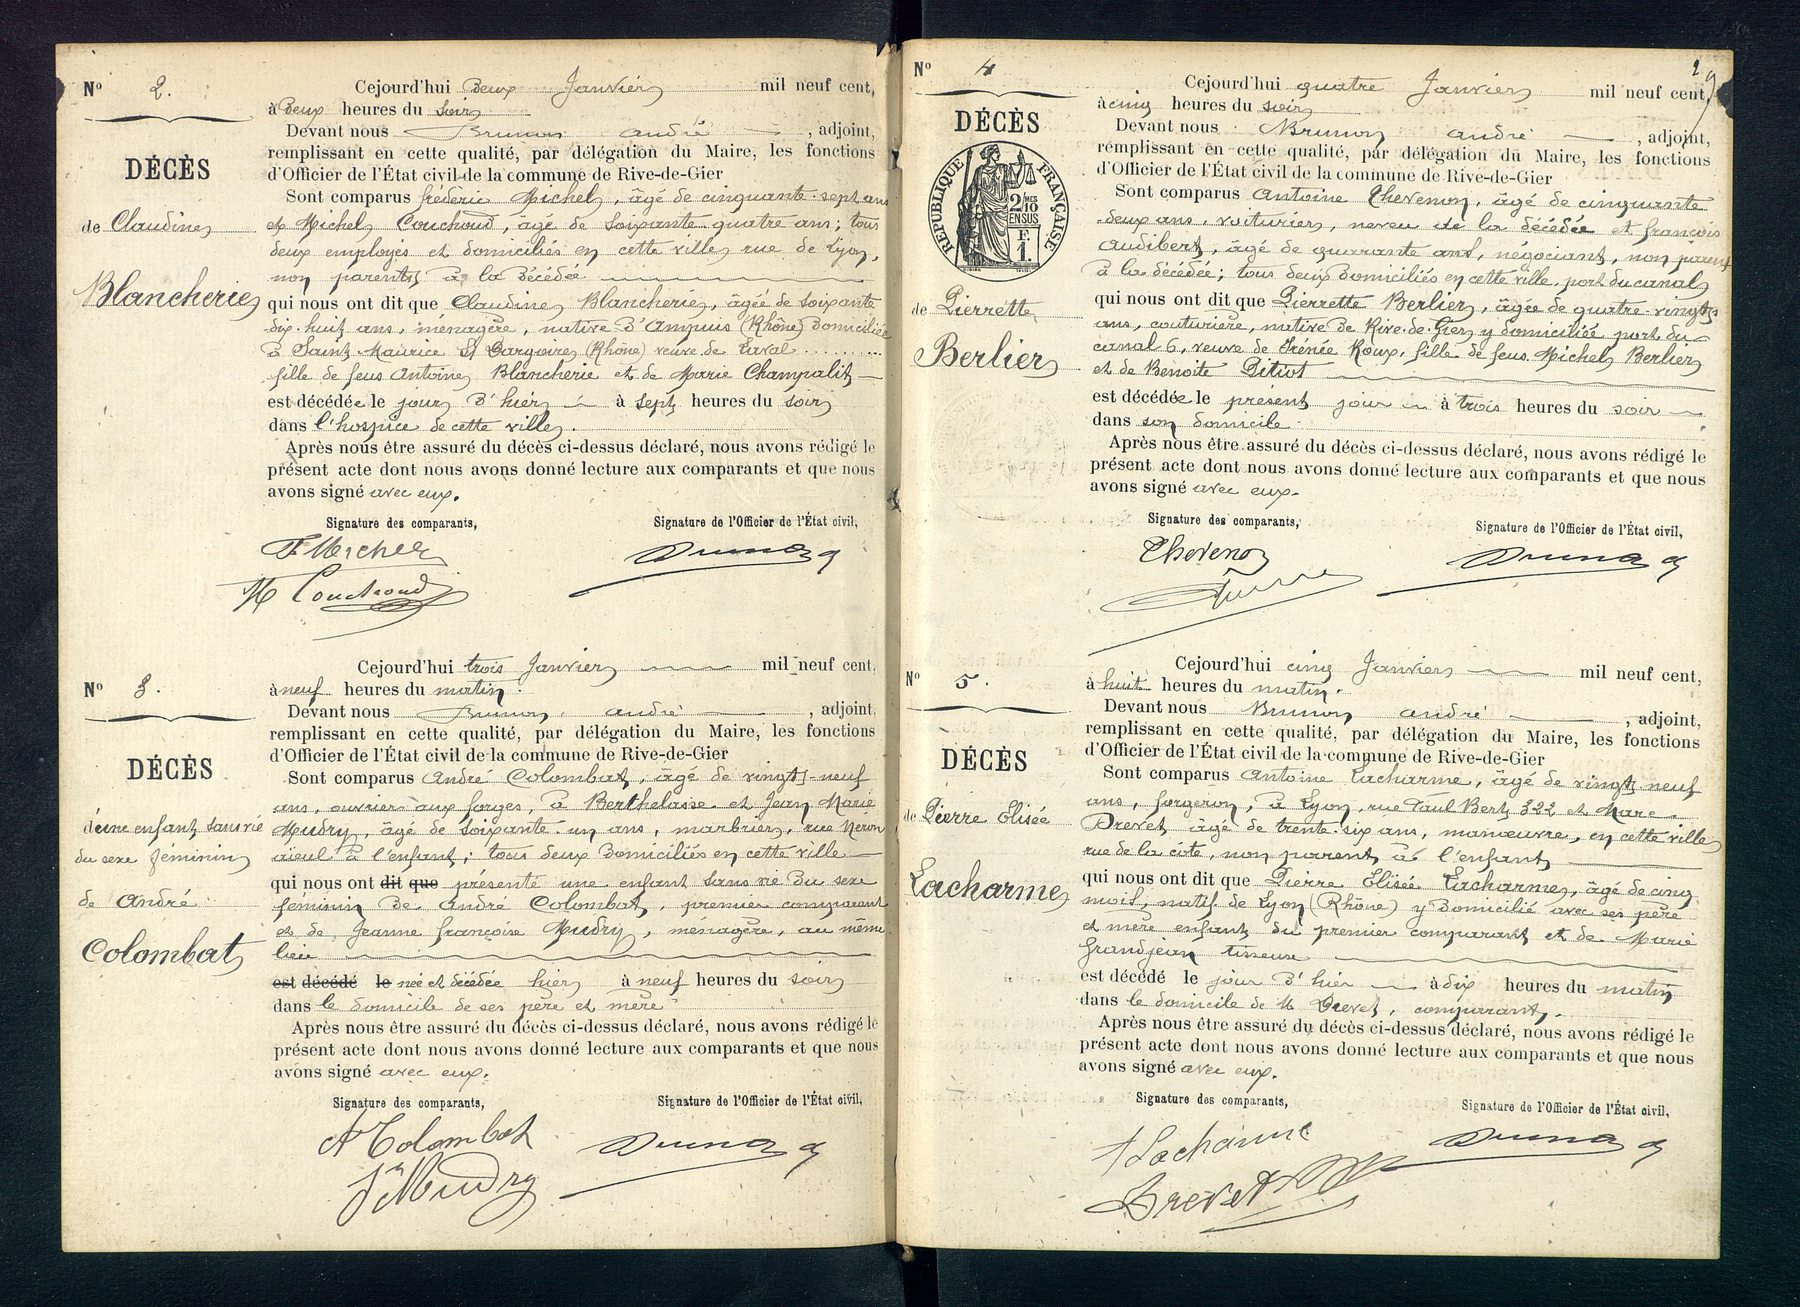 Nº 2.
DÉCÈS
de Claudine
Blancherie
Cejourd'hui Deux Janvier mil neuf cent,
à Deux heures du soir
Devant nous Brunon André, adjoint,
remplissant en cette qualité, par délégation du Maire, les fonctions
d'Officier de l'État civil de la commune de Rive-de-Gier
Sont comparus frédéric Michel, âgé de cinquante-sept ans
et Michel Couchoud, âgé de soixante quatre ans; tous
deux employés et domiciliés en cette ville, rue de Lyon,
non parents à la Décédée
qui nous ont dit que Claudine Blancherie, âgée de soixante
dix-huit ans, ménagère, native d'Ampuis (Rhône) domiciliée
à Saint Maurice St Dargoire (Rhône) veuve de Laval
fille de feus Antoine Blancherie et de Marie Champalit
est décédée le jour d'hier à sept heures du soir
dans l'hospice de cette ville.
Après nous être assuré du décès ci-dessus déclaré, nous avons rédigé le
présent acte dont nous avons donné lecture aux comparants et que nous
avons signé avec eux.
Signature des comparants, Signature de l'Officier de l'État civil,
F Michel Brunon a
M Couchoud
Nº 3.
DÉCÈS
d'une enfant sans vie
du sexe féminin
de André
Colombat
Cejourd'hui trois Janvier mil neuf cent,
à neuf heures du matin.
Devant nous Brunon, André, adjoint,
remplissant en cette qualité, par délégation du Maire, les fonctions
d'Officier de l'État civil de la commune de Rive-de-Gier
Sont comparus André Colombat, âgé de vingt-neuf
ans, ouvrier aux forges, à Berthelasse et Jean Marie
Mudry, âgé de soixante-un ans, marbrier, rue Néron
aïeul à l'enfant; tous deux domiciliés en cette ville
qui nous ont dit que présenté une enfant sans vie du sexe
féminin de André Colombat, premier comparant
et de Jeanne françoise Mudry, ménagère, au même
lieu
est décédé le née et décédée hier à neuf heures du soir
dans le domicile de ses père et mère
Après nous être assuré du décès ci-dessus déclaré, nous avons rédigé le
présent acte dont nous avons donné lecture aux comparants et que nous
avons signé avec eux.
Signature des comparants, Signature de l'Officier de l'État civil,
A Colombat Brunon a
Jn Mudry
2
Nº 4
DÉCÈS
RÉPUBLIQUE FRANÇAISE
2/10 MES
EN SUS
F.
1.
de Pierrette
Berlier
Cejourd'hui quatre Janvier mil neuf cent,
à cinq heures du soir
Devant nous Brunon André, adjoint,
remplissant en cette qualité, par délégation du Maire, les fonctions
d'Officier de l'État civil de la commune de Rive-de-Gier
Sont comparus Antoine Thevenon, âgé de cinquante
deux ans, voiturier, neveu de la décédée et françois
Audibert, âgé de quarante ans, négociant, non parent
à la décédée; tous deux domiciliés en cette ville, port du canal
qui nous ont dit que Pierrette Berlier, âgée de quatre-vingts
ans, couturière, native de Rive-de-Gier y domiciliée port du
canal 6, veuve de Irénée Roux, fille de feus Michel Berlier
et de Benoite Pitiot
est décédée le présent jour à trois heures du soir
dans son domicile
Après nous être assuré du décès ci-dessus déclaré, nous avons rédigé le
présent acte dont nous avons donné lecture aux comparants et que nous
avons signé avec eux.
Signature des comparants, Signature de l'Officier de l'État civil,
Thevenon Brunon a
Nº 5.
DÉCÈS
de Pierre Elisée
Lacharme
Cejourd'hui cinq Janvier mil neuf cent,
à huit heures du matin.
Devant nous Brunon André, adjoint,
remplissant en cette qualité, par délégation du Maire, les fonctions
d'Officier de l'État civil de la commune de Rive-de-Gier
Sont comparus Antoine Lacharme, âgé de vingt-neuf
ans, forgeron, à Lyon, rue Paul Bert, 322 et Marc
Drevet âgé de trente-six ans, manœuvre, en cette ville
rue de la côte, non parent à l'enfant
qui nous ont dit que Pierre Elisée Lacharme, âgé de cinq
mois, natif de Lyon (Rhône) y domicilié avec ses père
et mère enfant du premier comparant et de Marie
Grandjean tisseuse
est décédé le jour d'hier à dix heures du matin
dans le domicile de M Drevet, comparant.
Après nous être assuré du décès ci-dessus déclaré, nous avons rédigé le
présent acte dont nous avons donné lecture aux comparants et que nous
avons signé avec eux.
Signature des comparants, Signature de l'Officier de l'État civil,
A Lacharme Brunon a
Drevet